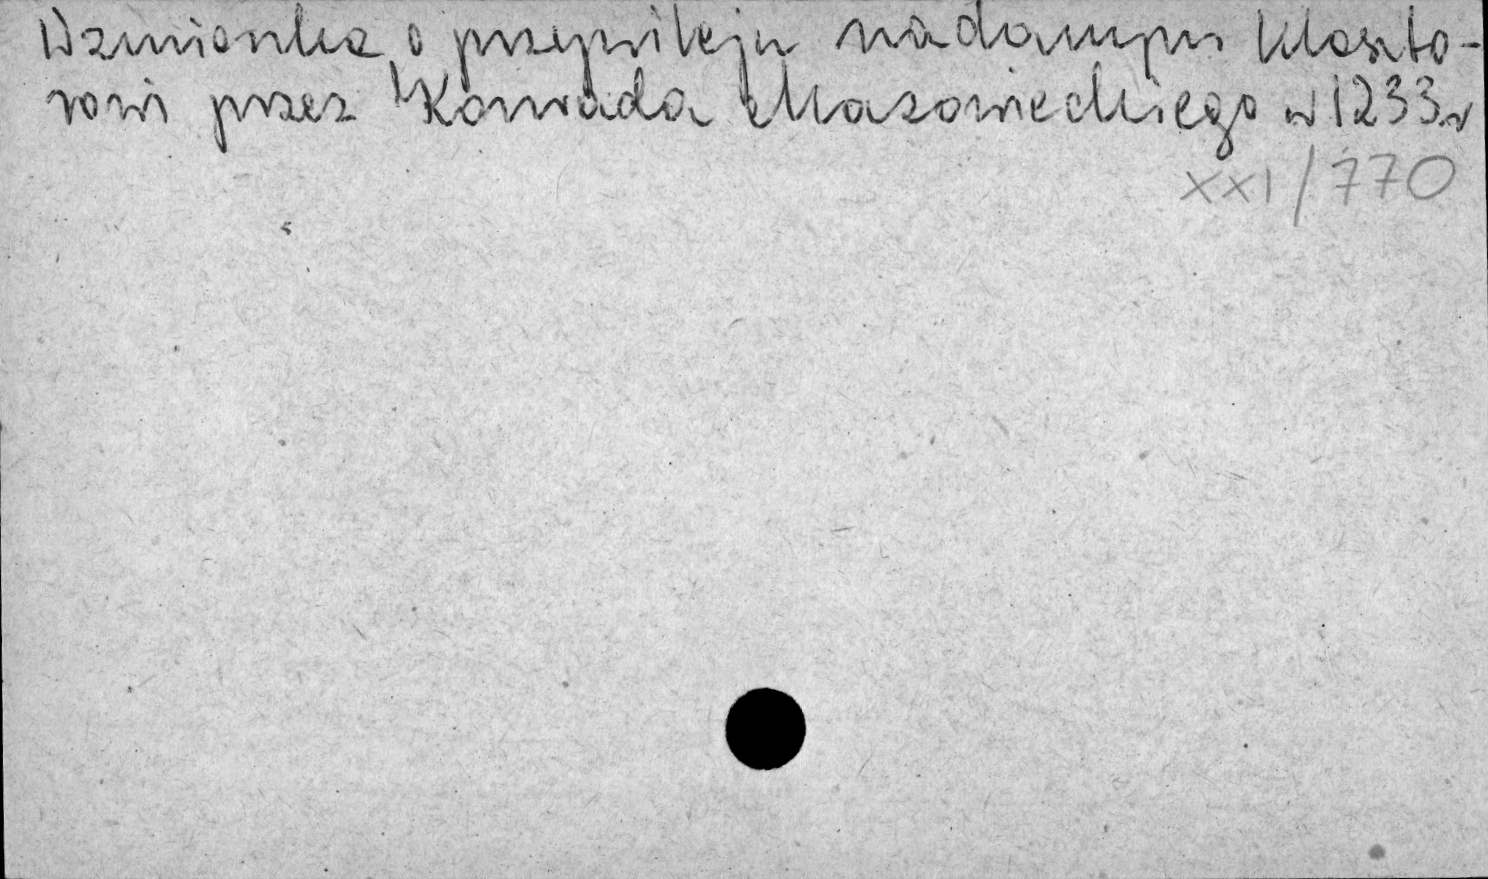 Wzmianka o przywileju nadanym kloszto-
rowi przez Konrada Mazowieckiego w 1233 r
XXI/770